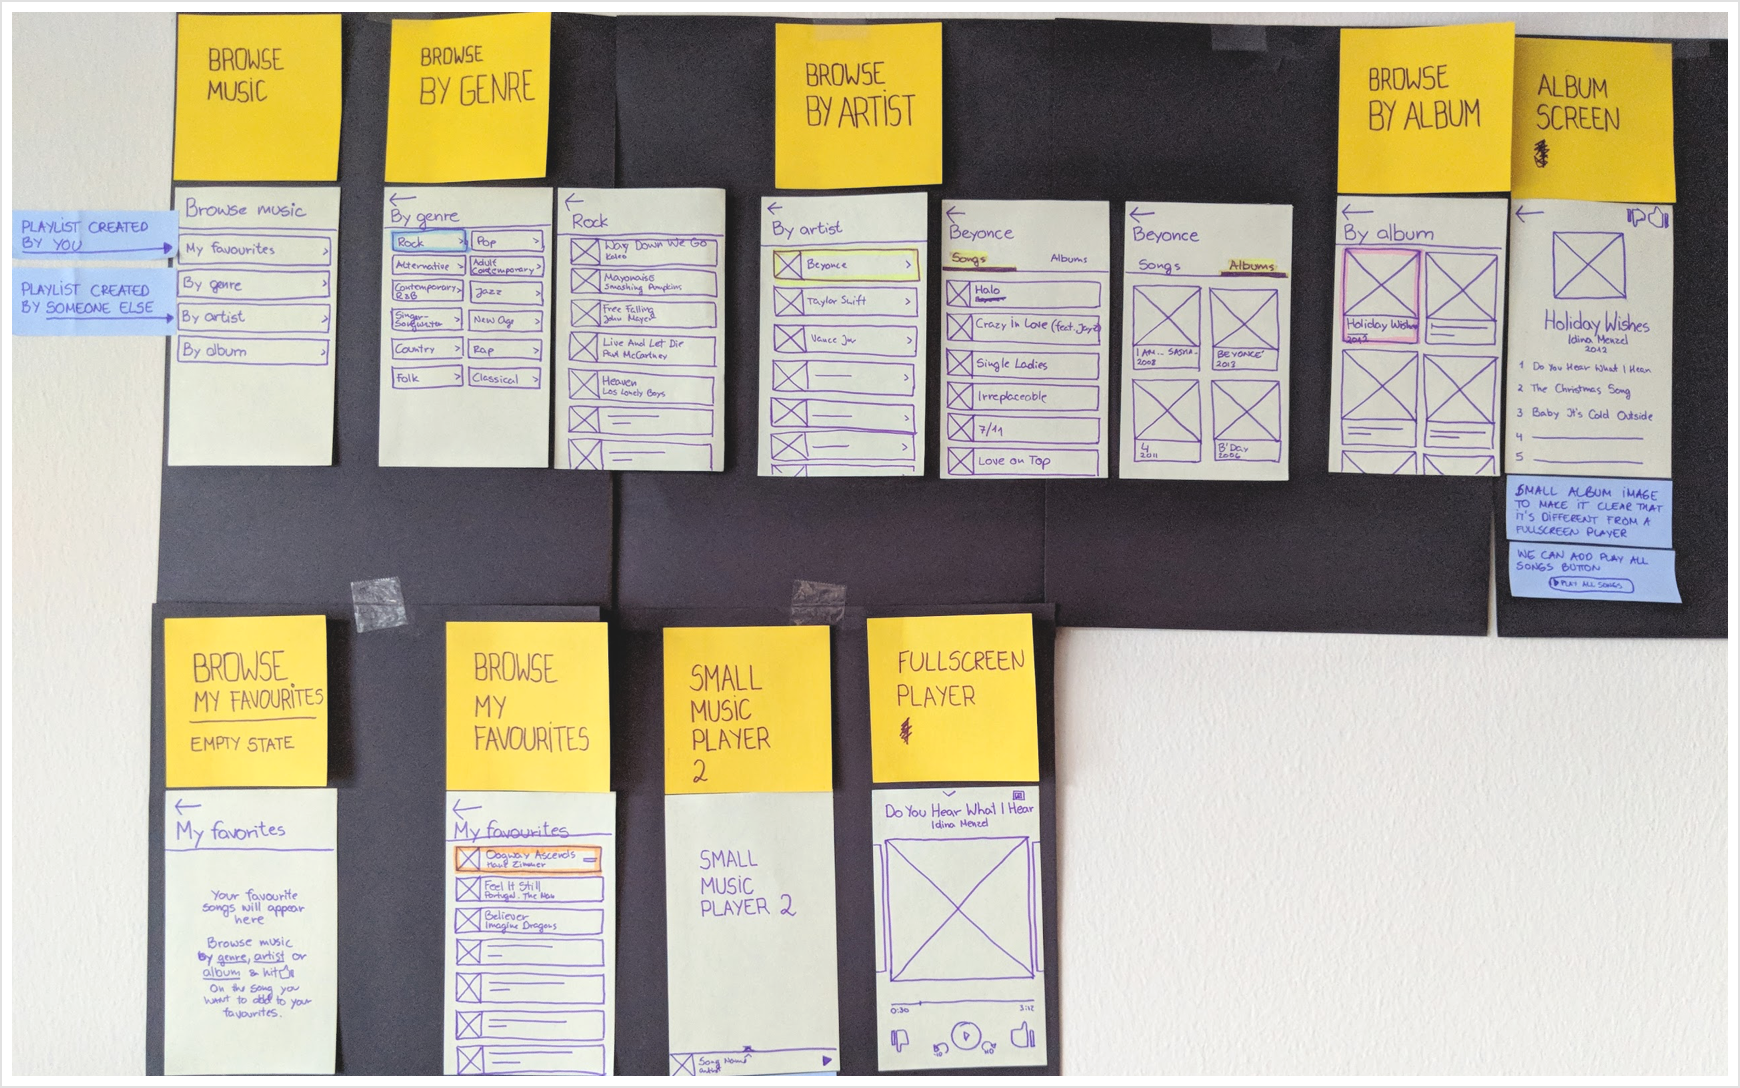 BROWSE
MUSIC
BROWSE
BY GENRE
BROWSE
BY ARTIST
BROWSE
BY ALBUM
ALBUM
SCREEN
PLAYLIST CREATED
BY YOU
PLAYLIST CREATED
BY SOMEONE ELSE
Browse music
My favourites
By genre
By artist
By album
By genre
Rock
Pop
Alternative
Adult
Contemporary
Contemporary
R&B
Jazz
Singer-
Songwriter
New Age
Country
Rap
Folk
Classical
Rock
Way Down We Go
Kaleo
Mayonaise
Smashing Pumpkins
Free Falling
John Mayer
Live And Let Die
Paul McCartney
Heaven
Los Lonely Boys
By artist
Beyonce
Taylor Swift
Vance Joy
Beyonce
Songs
Albums
Halo
Crazy In Love (feat. Jay Z
Single Ladies
Irreplaceable
7/11
Love on Top
Beyonce
Songs
Albums
I AM... SASHA-
2008
BEYONCE'
2013
4
2011
B'Day
2006
By album
Holiday Wishes
2013
Holiday Wishes
Idina Menzel
2012
1 Do You Hear What I Hear
2 The Christmas Song
3 Baby It's Cold Outside
4
5
SMALL ALBUM IMAGE
TO MAKE IT CLEAR THAT
IT'S DIFFERENT FROM A
FULLSCREEN PLAYER
WE CAN ADD PLAY ALL
SONGS BUTTON
PLAY ALL SONGS
BROWSE
MY FAVOURITES
EMPTY STATE
BROWSE
MY
FAVOURITES
SMALL
MUSIC
PLAYER
2
FULLSCREEN
PLAYER
My favorites
Your favourite
songs will appear
here
Browse music
by genre, artist or
album & hit
On the song you
want to add to your
favourites.
My favourites
Oogway Ascends
Hans Zimmer
Feel It Still
Portugal. The Man
Believer
Imagine Dragons
SMALL
MUSIC
PLAYER 2
Song Name
Artist
Do You Hear What I Hear
Idina Menzel
0:30
3:12